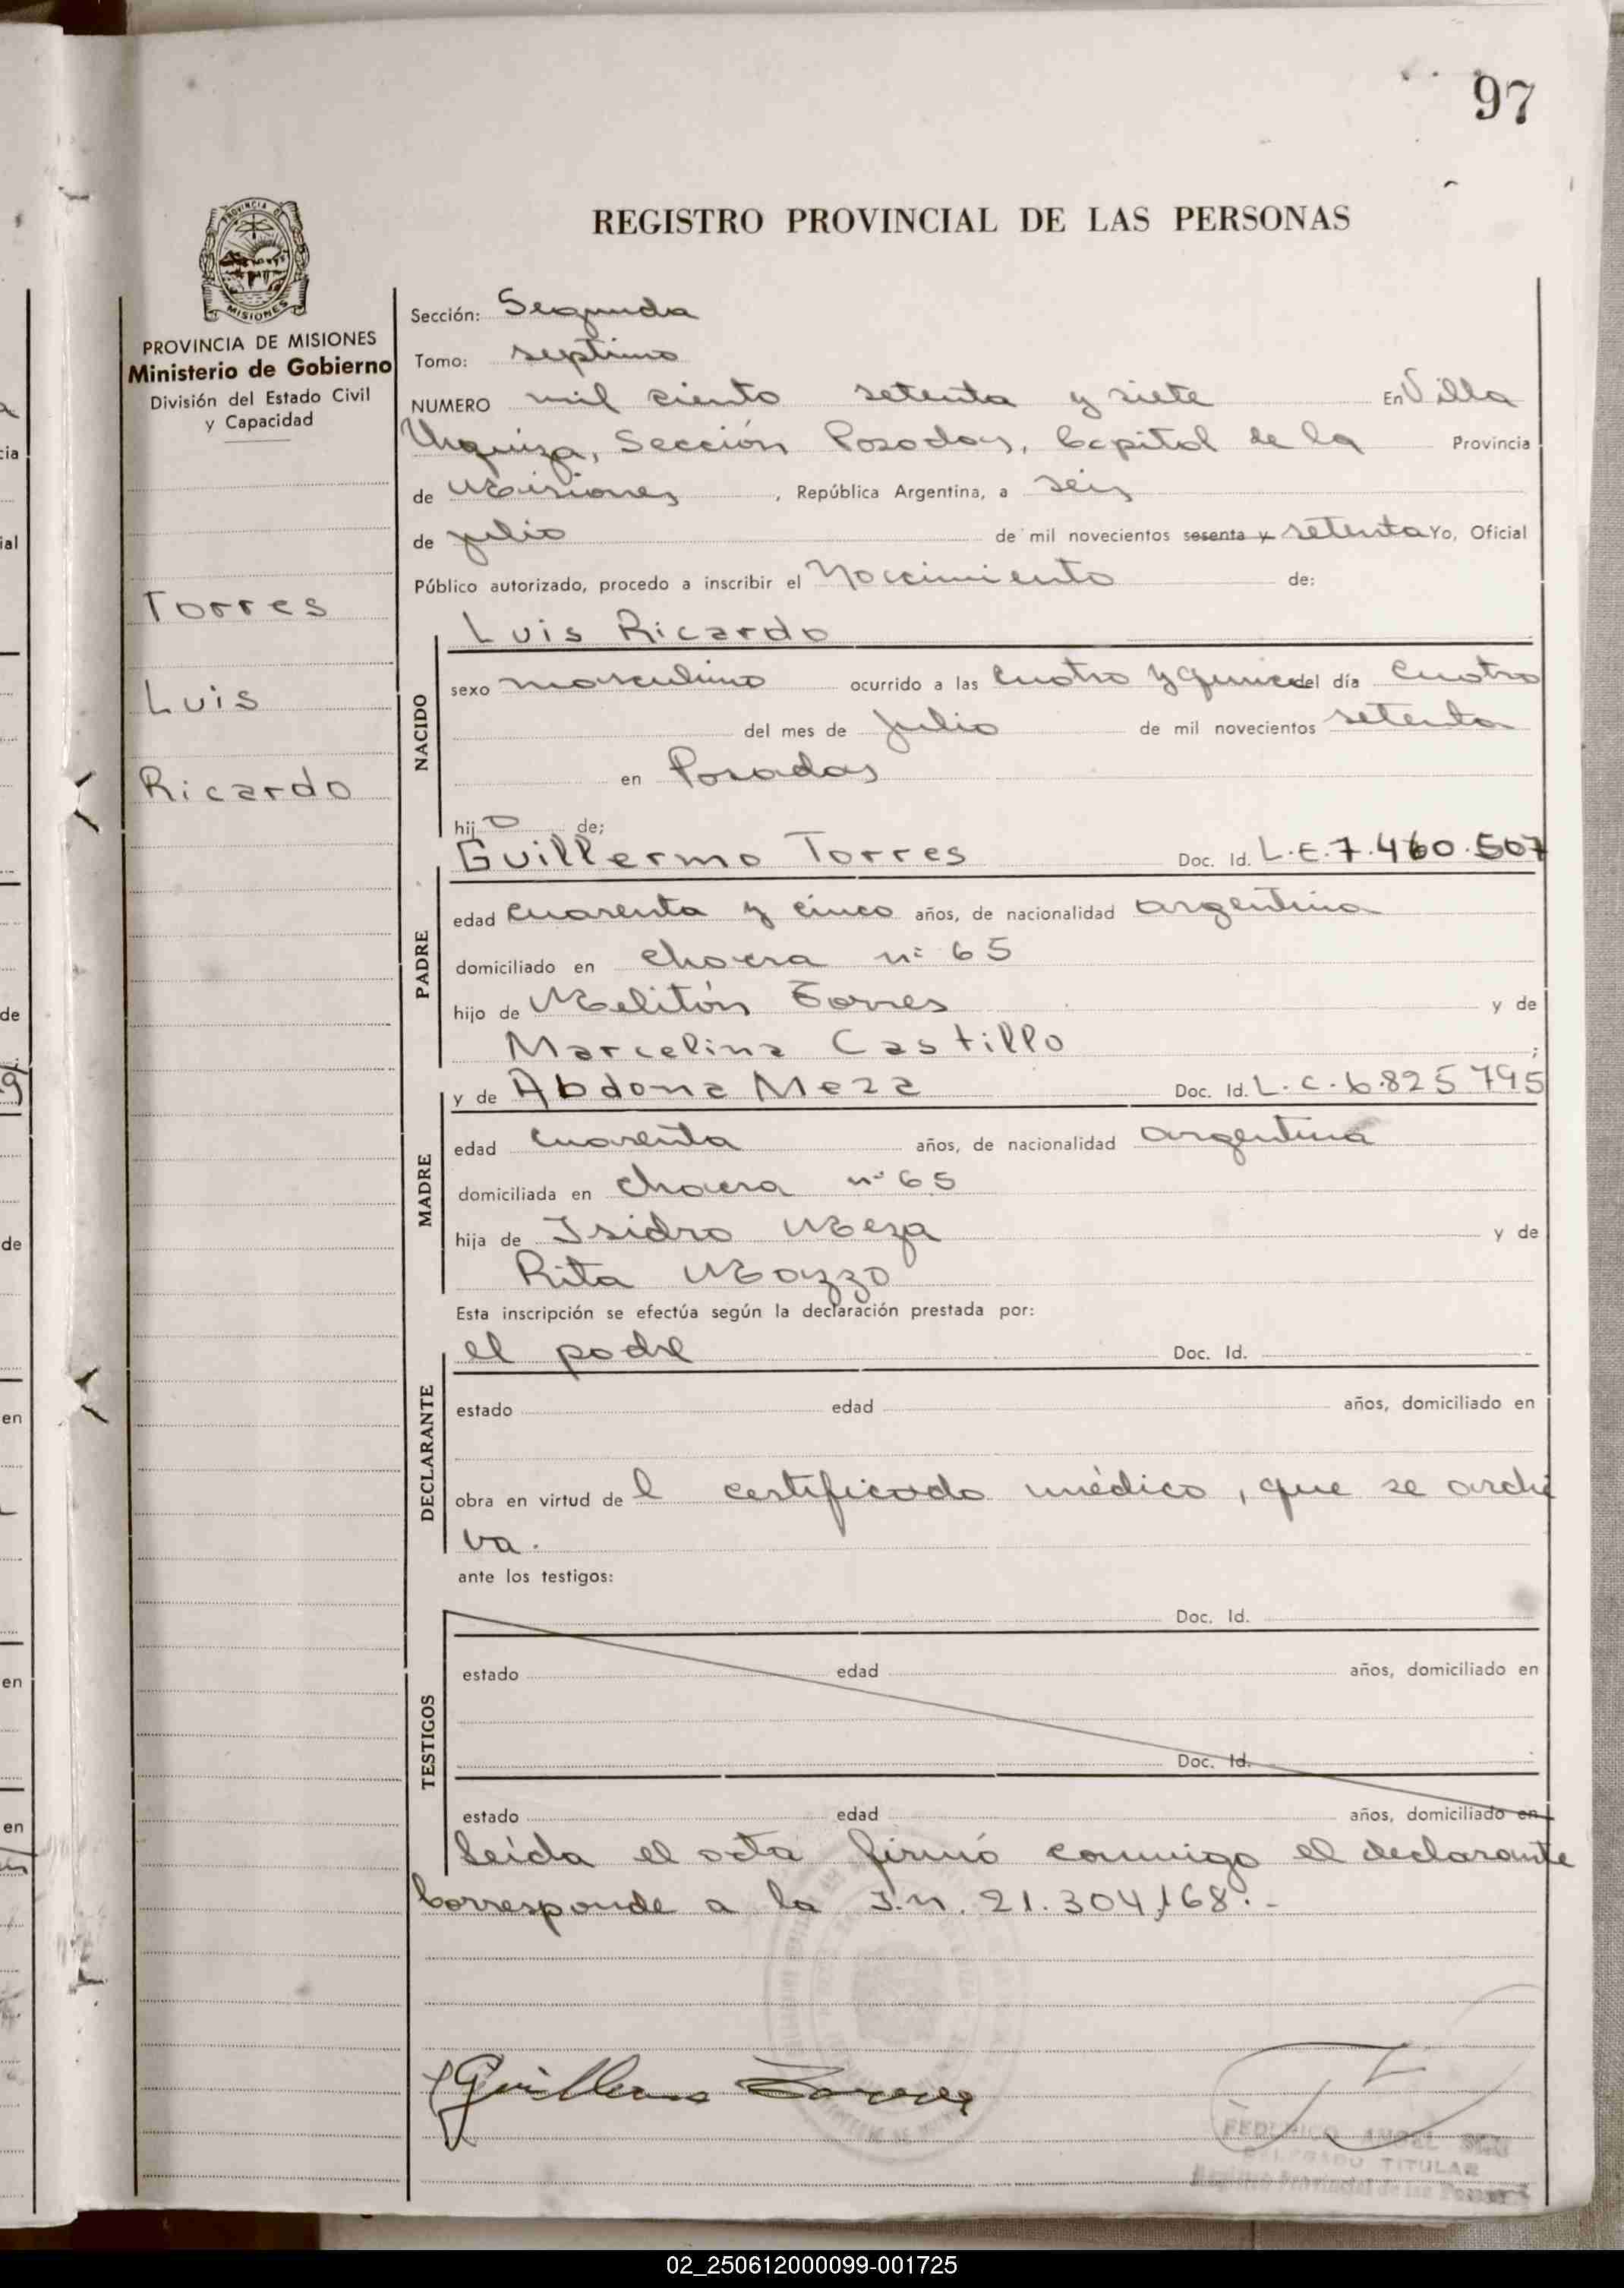 97
REGISTRO PROVINCIAL DE LAS PERSONAS
PROVINCIA DE MISIONES
Ministerio de Gobierno
División del Estado Civil
y Capacidad
Torres
Luis
Ricardo
Sección: Segunda
Tomo: septimo
NUMERO mil ciento setenta y siete En Villa
Urquiza, Sección Posadas, Capital de la Provincia
de Misiones, República Argentina, a seis
de julio de mil novecientos sesenta y setenta Yo, Oficial
Público autorizado, procedo a inscribir el Nacimiento de:
Luis Ricardo
NACIDO
sexo masculino ocurrido a las cuatro y quince del día cuatro
del mes de julio de mil novecientos setenta
en Posadas
hijo de;
Guillermo Torres Doc. Id. L.E. 7.460.507
PADRE
edad cuarenta y cinco años, de nacionalidad argentina
domiciliado en chacra nº 65
hijo de Melitón Torres y de
Marcelina Castillo ;
y de Abdona Meza Doc. Id. L.C. 6.825795
MADRE
edad cuarenta años, de nacionalidad argentina
domiciliada en chacra nº 65
hija de Isidro Meza y de
Rita Mazzo
Esta inscripción se efectúa según la declaración prestada por:
el padre Doc. Id.
DECLARANTE
estado edad años, domiciliado en
obra en virtud del certificado médico, que se archi
va.
ante los testigos:
Doc. Id.
TESTIGOS
estado edad años, domiciliado en
Doc. Id.
estado edad años, domiciliado en
Leída el acta firmó conmigo el declarante
Corresponde a la I.N. 21.304,168.-
Guillermo Torres
FEDERICO ANGEL
DELEGADO TITULAR
Registro Provincial de las Personas
02_250612000099-001725